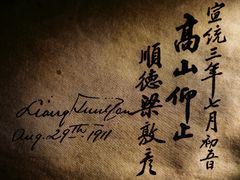 宣統三年七月初五日
高山仰止
順德梁敦彥
Liang Tun Yen
Aug. 29th 1911